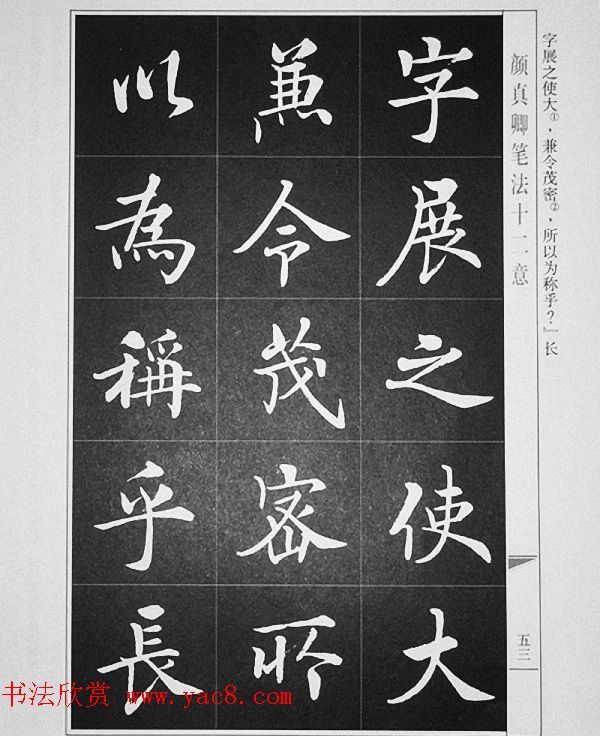 字展之使大①,兼令茂密②,所以为称乎?』长
颜真卿笔法十二意
字展之使大
兼令茂密所
以為稱乎長
五三
书法欣赏 www.yac8.com